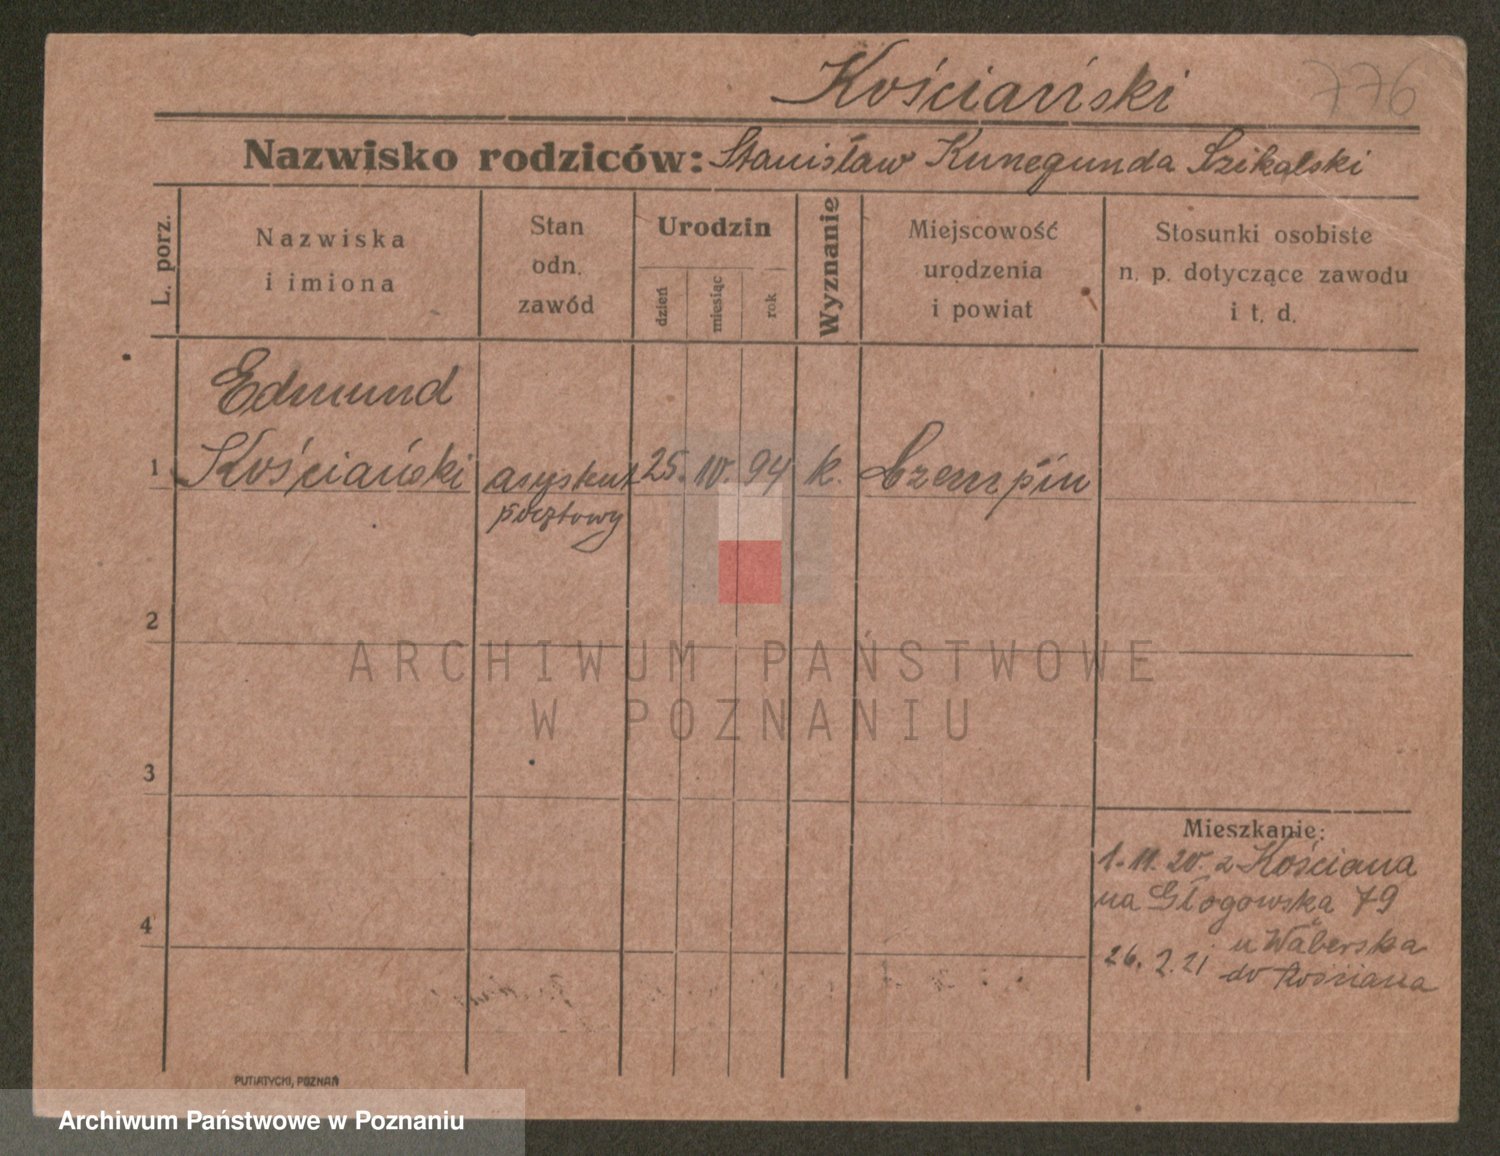 Kościański
776
Nazwisko rodziców: Stanisław Kunegunda Szikalski
L. porz.
Nazwiska
i imiona
Stan
odn.
zawód
Urodzin
dzień
miesiąc
rok
Wyznanie
Miejscowość
urodzenia
i powiat
Stosunki osobiste
n. p. dotyczące zawodu
i t. d.
Edmund
1 Kościański asyskut 25. 10. 94 k. Czempiń
pocztowy
2
3
4
ARCHIWUM PAŃSTWOWE
W POZNANIU
Mieszkanie:
1. 11. 20. z Kościana
na Głogowska 79
u Waberska
26. 2. 21 do Kościana
PUTIATYCKI, POZNAŃ
Archiwum Państwowe w Poznaniu